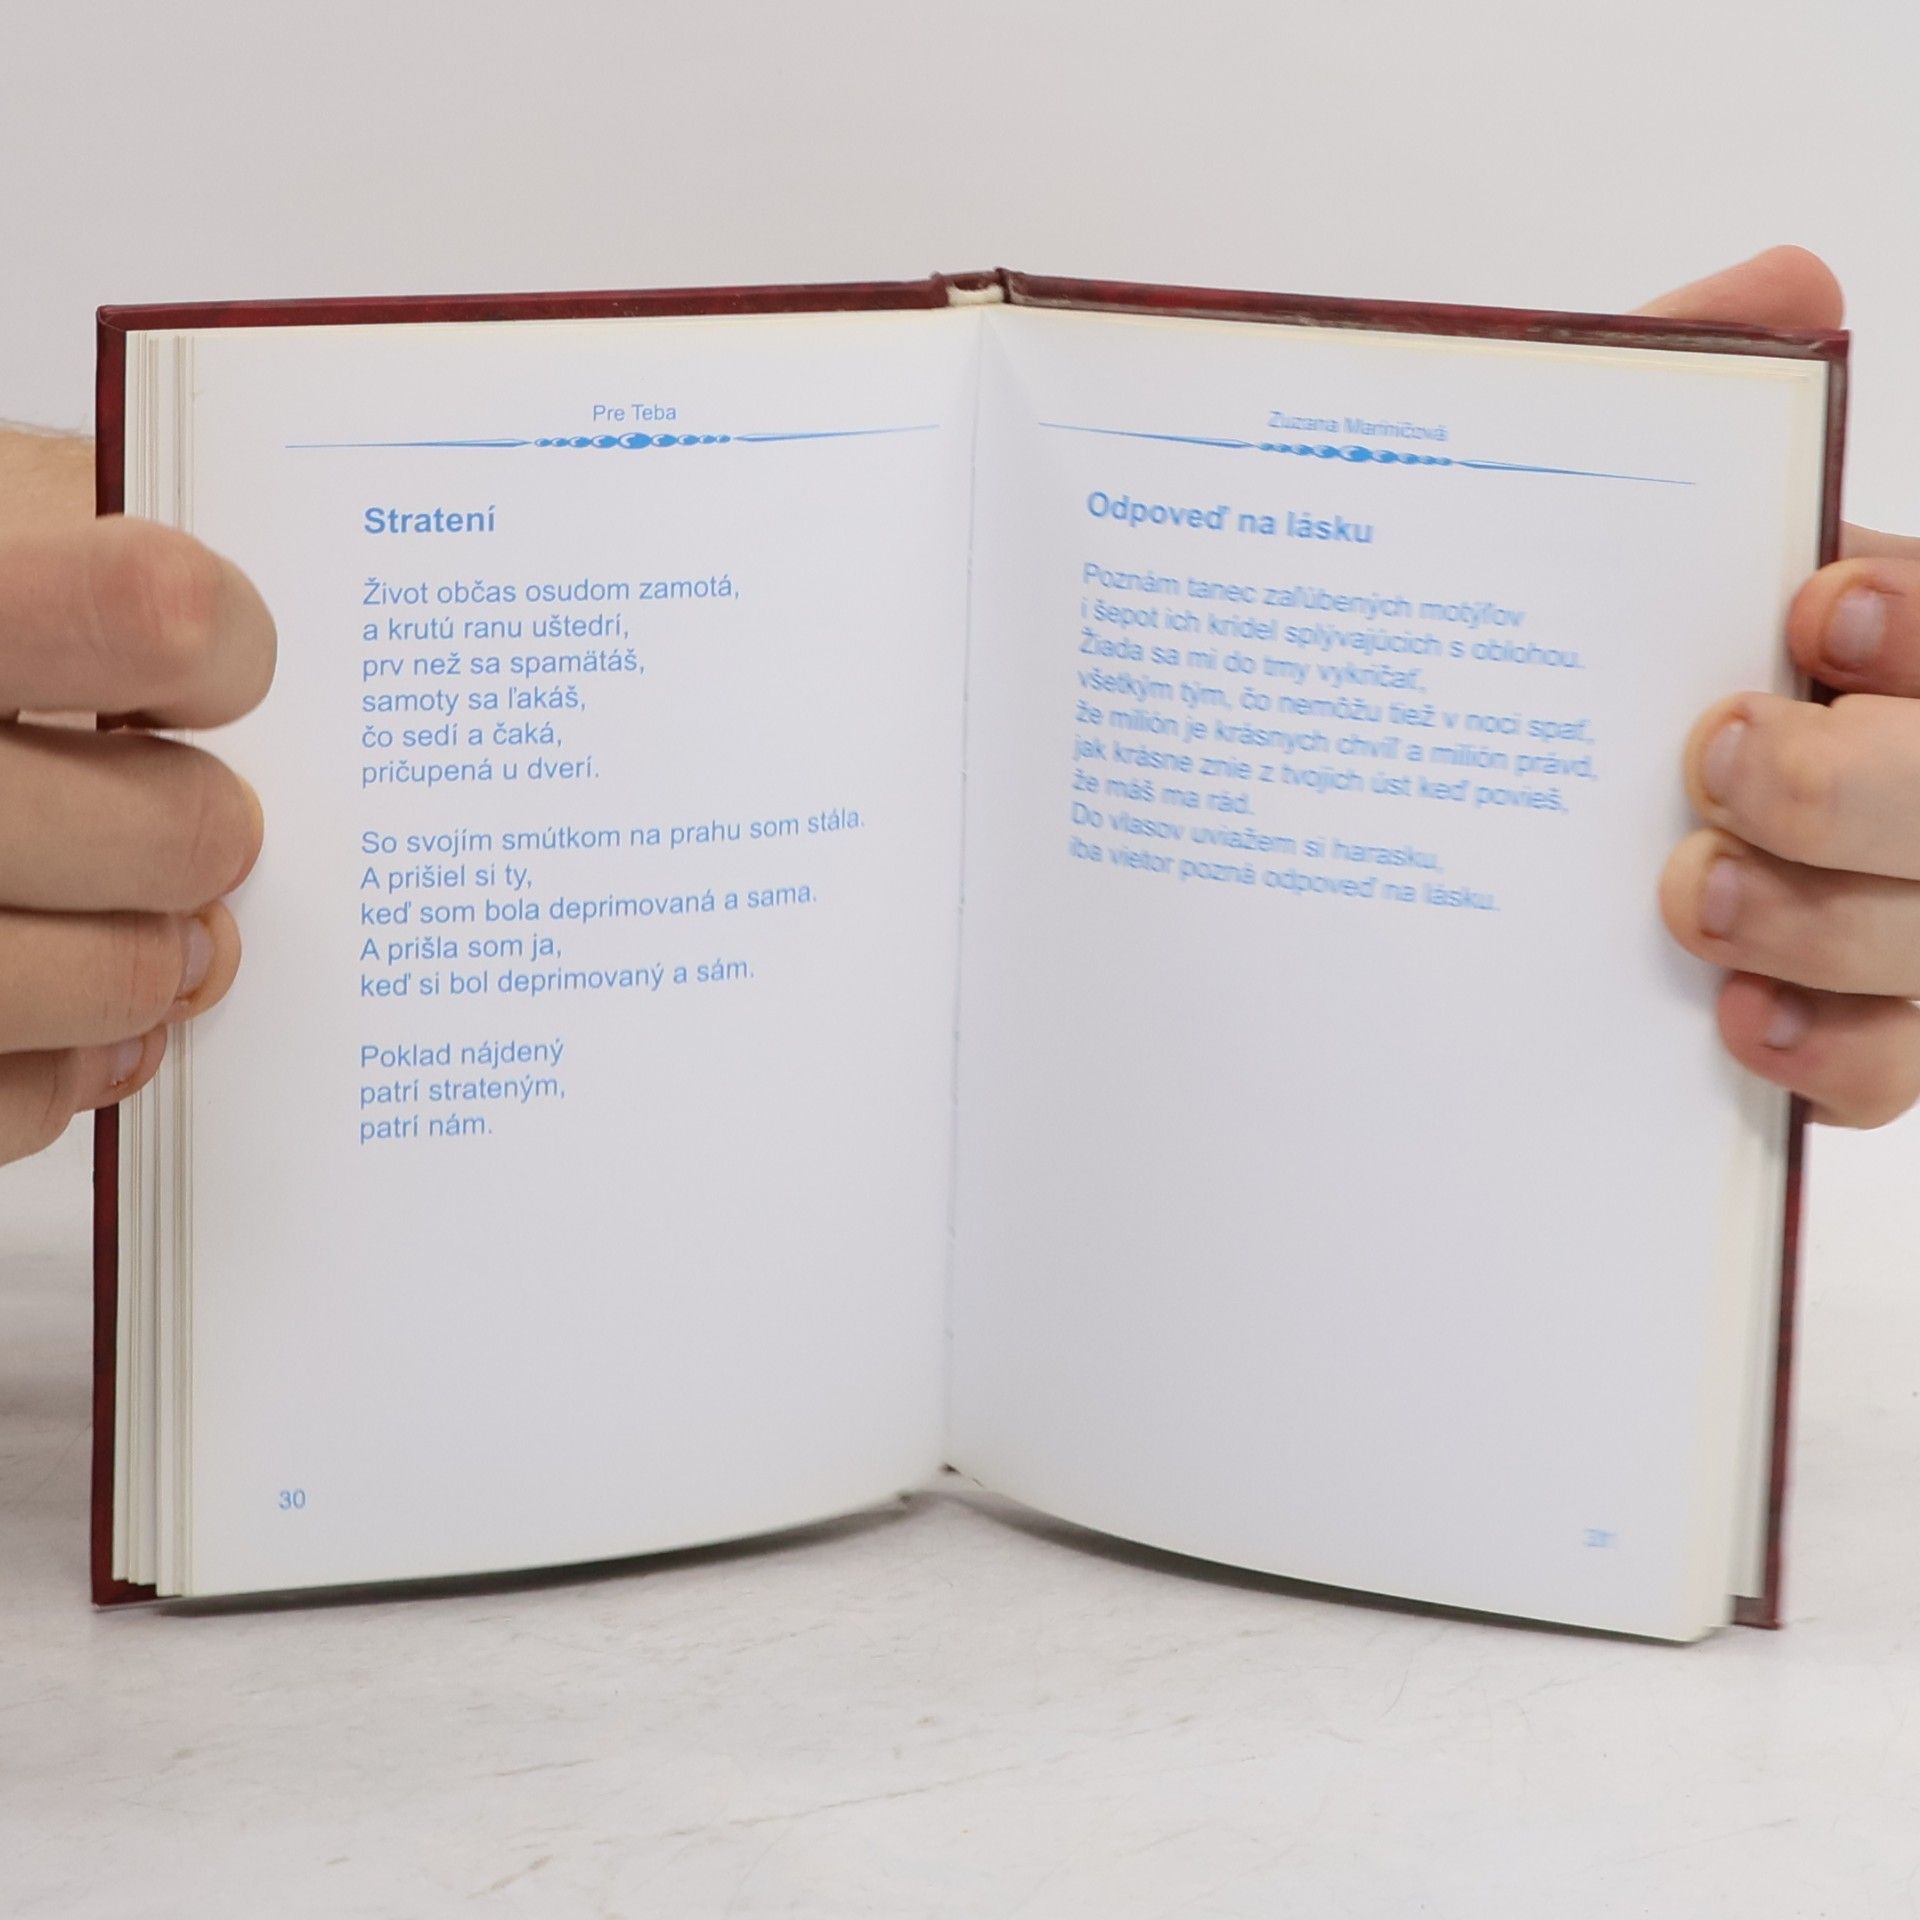 Pre Teba
Stratení
Život občas osudom zamotá,
a krutú ranu uštedrí,
prv než sa spamätáš,
samoty sa ľakáš,
čo sedí a čaká,
pričupená u dverí.
So svojím smútkom na prahu som stála.
A prišiel si ty,
keď som bola deprimovaná a sama.
A prišla som ja,
keď si bol deprimovaný a sám.
Poklad nájdený
patrí strateným,
patrí nám.
30
Zuzana
Odpoveď na lásku
Poznám tanec zaľúbených motýľov
i šepot ich krídel splývajúcich s oblohou.
Žiada sa mi do tmy vykričať,
všetkým tým, čo nemôžu tiež v noci spať,
že milión je krásnych chvíľ a milión právd,
jak krásne znie z tvojich úst keď povieš,
že máš ma rád.
Do vlasov uviažem si harasku,
iba vietor pozná odpoveď na lásku.